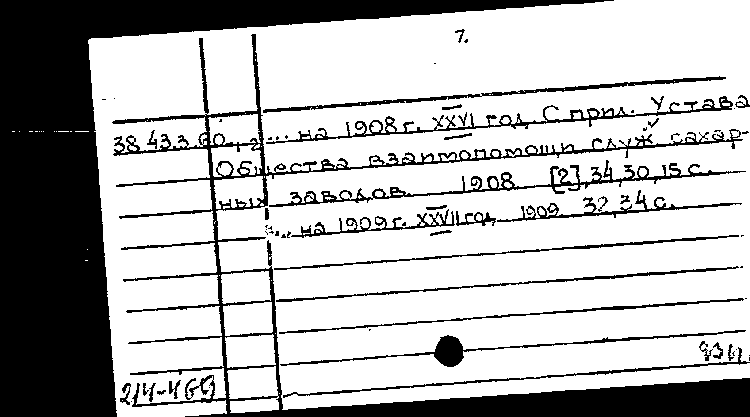 7.
38.43.3.60.,2 ... на 1908 г. XXVI год. С прил. Устава
Общества взаимопомощи служ. сахар-
ных заводов. 1908 [2], 34, 30, 15 с.
... на 1909 г. XXVII год 1909 32, 34 с.